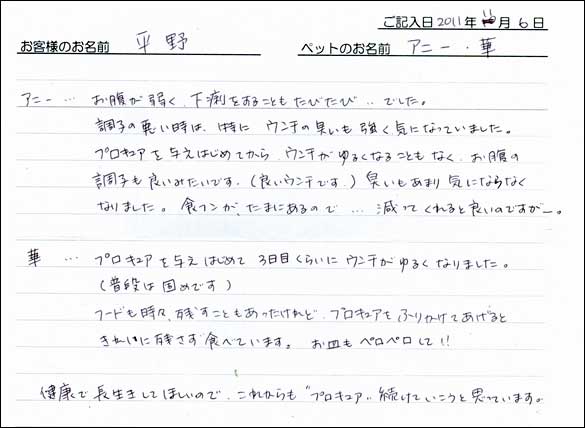 ご記入日 2011年 11月 6日
お客様のお名前 平野 ペットのお名前 アニー・華
アニー … お腹が弱く、下痢をすることもたびたび‥でした。
調子の悪い時は、特に ウンチの臭いも強く気になっていました。
プロキュアを与えはじめてから、ウンチがゆるくなることもなく、お腹の
調子も良いみたいです。(良いウンチです。) 臭いもあまり気にならなく
なりました。食フンが、たまにあるので … 減ってくれると良いのですがー。
華 … プロキュアを与えはじめて 3日目くらいに ウンチがゆるくなりました。
(普段は固めです)
フードも時々、残すこともあったけれど、プロキュアをふりかけてあげると
きれいに残さず食べています。お皿もペロペロして!!
健康で長生きしてほしいので、これからも"プロキュア"続けていこうと思っています。